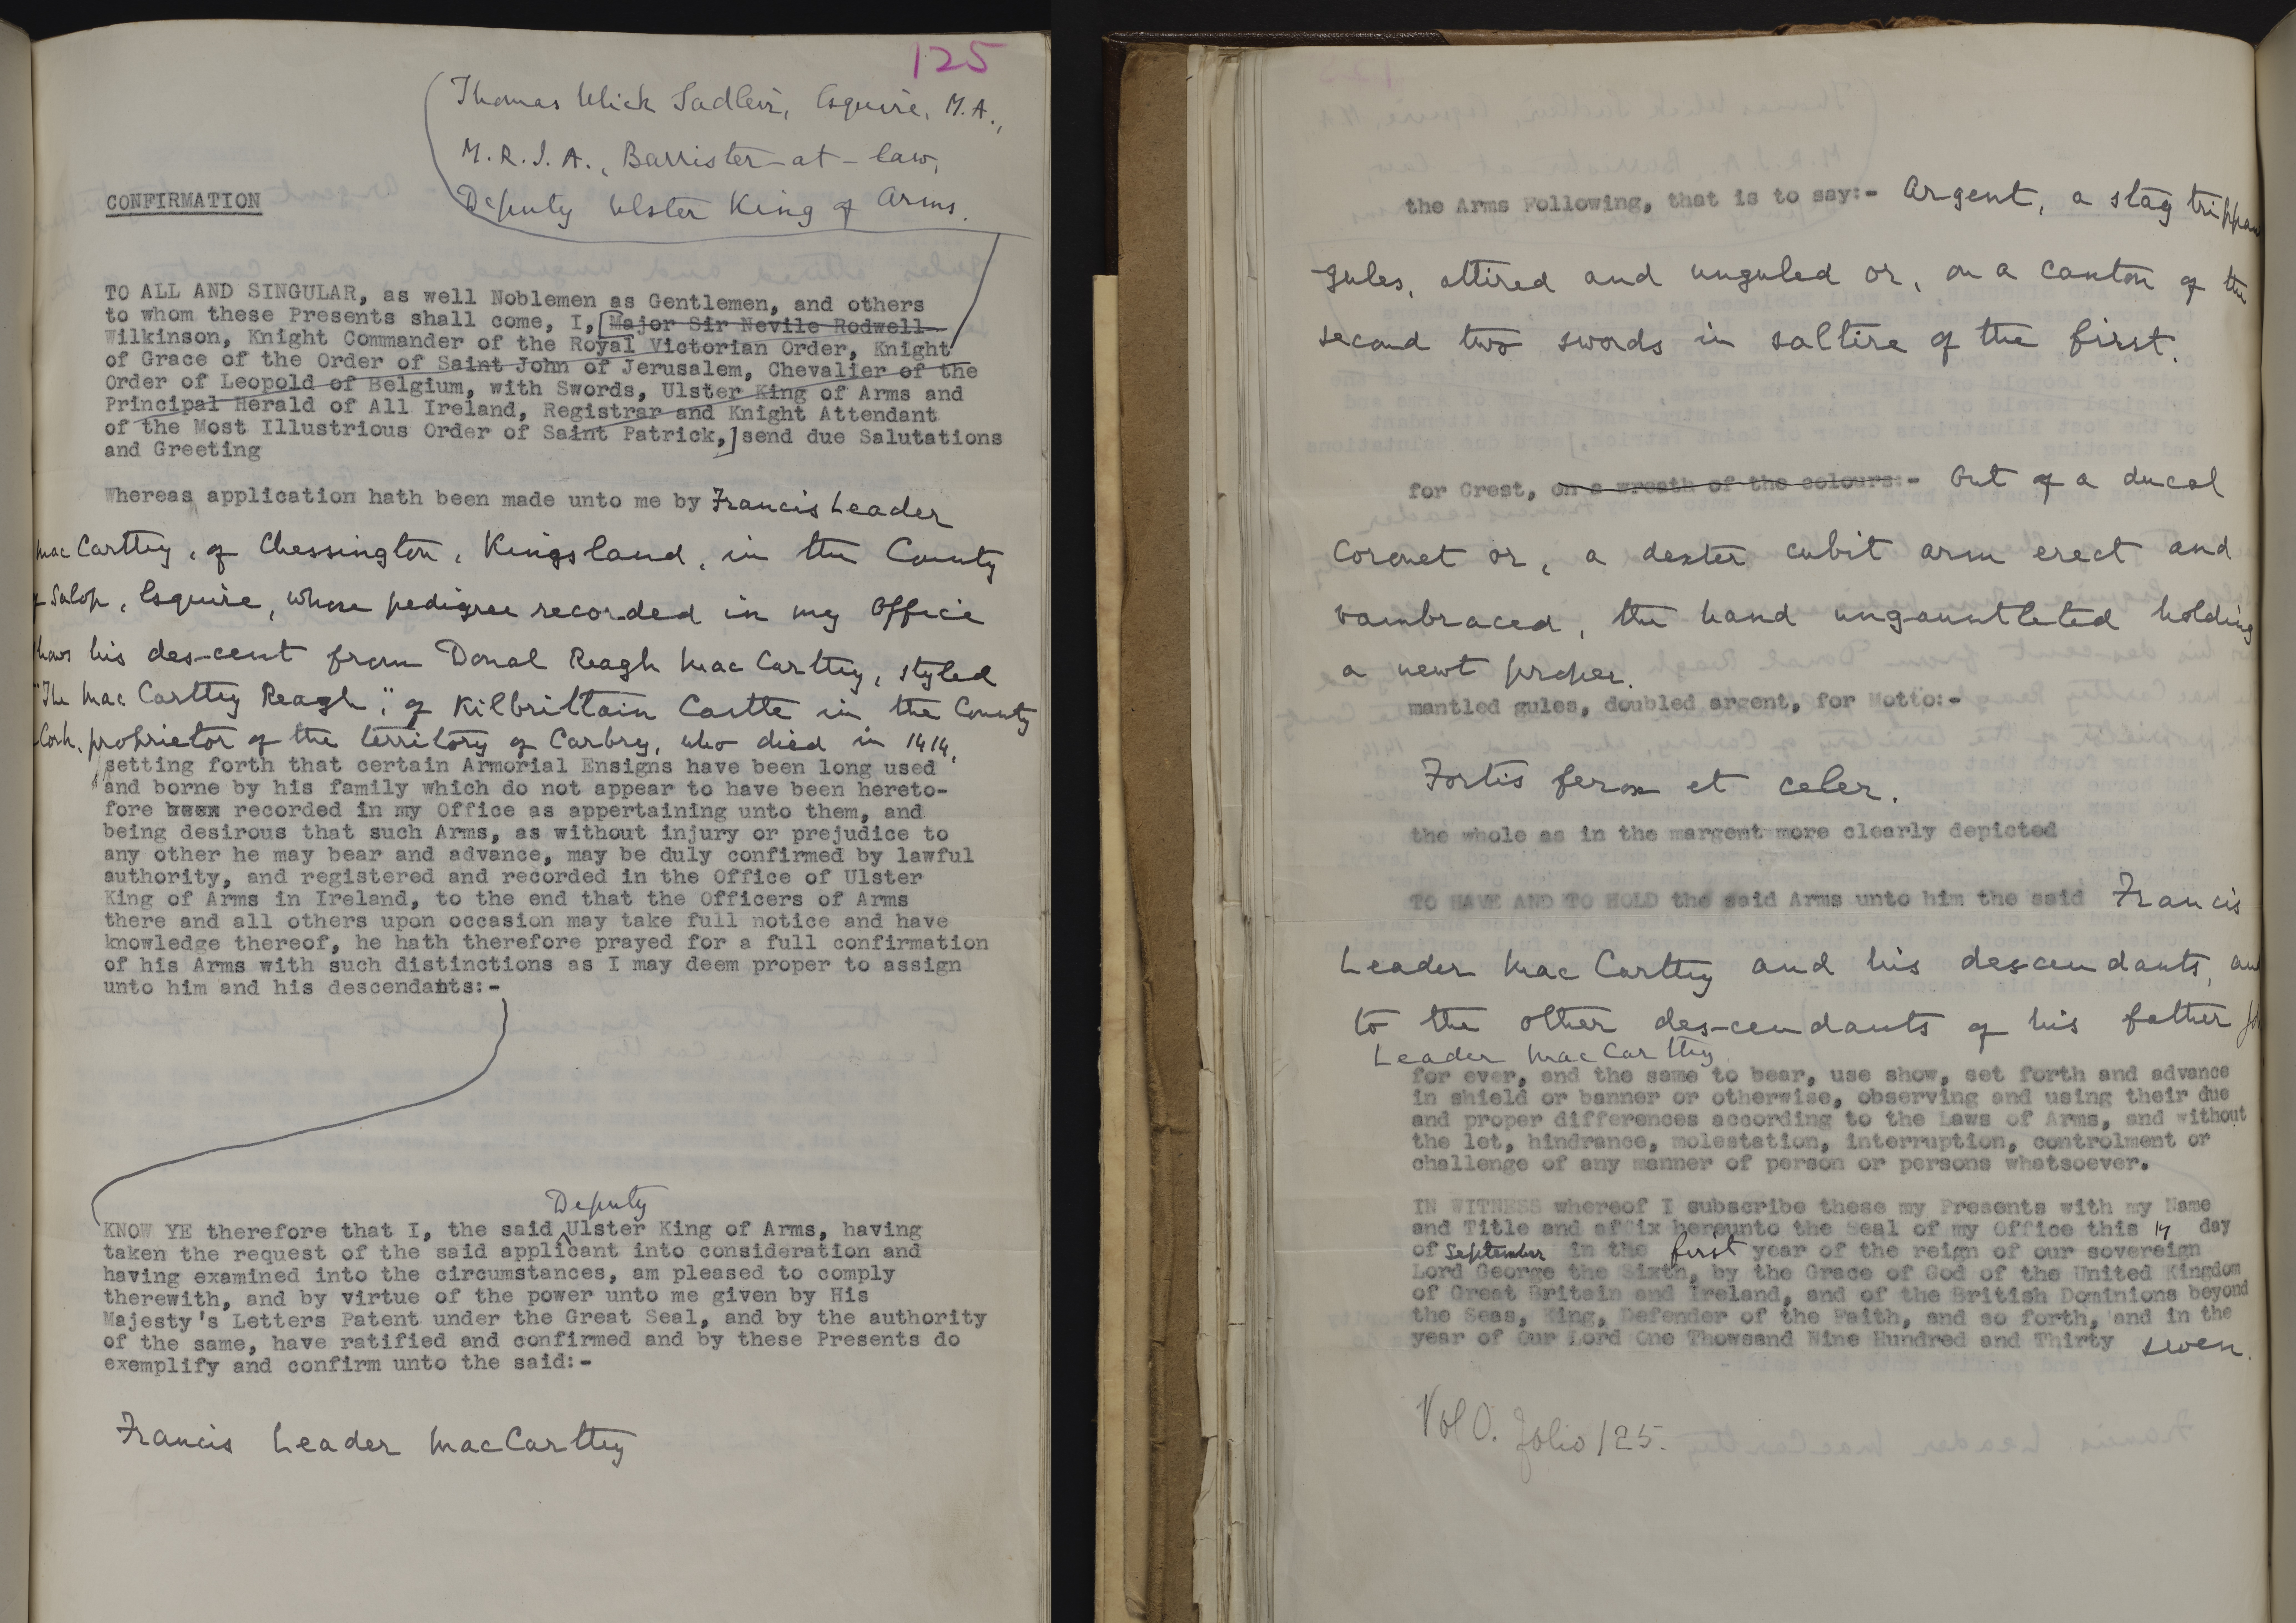 125
Thomas Ulick Sadleir, Esquire, M.A.,
M.R.I.A., Barrister-at-law,
Deputy Ulster King of Arms.
CONFIRMATION
TO ALL AND SINGULAR, as well Noblemen as Gentlemen, and others
to whom these Presents shall come, I, [Major Sir Nevile Rodwell
Wilkinson, Knight Commander of the Royal Victorian Order, Knight
of Grace of the Order of Saint John of Jerusalem, Chevalier of the
Order of Leopold of Belgium, with Swords, Ulster King of Arms and
Principal Herald of All Ireland, Registrar and Knight Attendant
of the Most Illustrious Order of Saint Patrick,] send due Salutations
and Greeting
Whereas application hath been made unto me by Francis Leader
MacCarthy, of Chessington, Kingsland, in the County
of Salop, Esquire, whose pedigree recorded in my Office
shows his des-cent from Donal Reagh MacCarthy, styled
"The MacCarthy Reagh", of Kilbrittain Castle in the County
Cork, proprietor of the territory of Carbry, who died in 1414,
setting forth that certain Armorial Ensigns have been long used
and borne by his family which do not appear to have been hereto-
fore recorded in my Office as appertaining unto them, and
being desirous that such Arms, as without injury or prejudice to
any other he may bear and advance, may be duly confirmed by lawful
authority, and registered and recorded in the Office of Ulster
King of Arms in Ireland, to the end that the Officers of Arms
there and all others upon occasion may take full notice and have
knowledge thereof, he hath therefore prayed for a full confirmation
of his Arms with such distinctions as I may deem proper to assign
unto him and his descendants:-
Deputy
KNOW YE therefore that I, the said Ulster King of Arms, having
taken the request of the said applicant into consideration and
having examined into the circumstances, am pleased to comply
therewith, and by virtue of the power unto me given by His
Majesty's Letters Patent under the Great Seal, and by the authority
of the same, have ratified and confirmed and by these Presents do
exemplify and confirm unto the said:-
Francis Leader MacCarthy
the Arms Following, that is to say:- Argent, a stag trippan
gules, attired and unguled or, on a canton of the
second two swords in saltire of the first.
for Crest, on a wreath of the colours:- Out of a ducal
coronet or, a dexter cubit arm erect and
vambraced, the hand ungauntleted holding
a newt proper.
mantled gules, doubled argent, for Motto:-
Fortis ferox et celer.
the whole as in the margent more clearly depicted
TO HAVE AND TO HOLD the said Arms unto him the said Francis
Leader MacCarthy and his descendants, and
to the other des-cendants of his father
Leader MacCarthy
for ever, and the same to bear, use show, set forth and advance
in shield or banner or otherwise, observing and using their due
and proper differences according to the Laws of Arms, and without
the let, hindrance, molestation, interruption, controlment or
challenge of any manner of person or persons whatsoever.
IN WITNESS whereof I subscribe these my Presents with my Name
and Title and affix hereunto the Seal of my Office this 14 day
of September in the first year of the reign of our sovereign
Lord George the Sixth, by the Grace of God of the United Kingdom
of Great Britain and Ireland, and of the British Dominions beyond
the Seas, King, Defender of the Faith, and so forth, and in the
year of Our Lord One Thousand Nine Hundred and Thirty seven.
Vol O. folio 125.